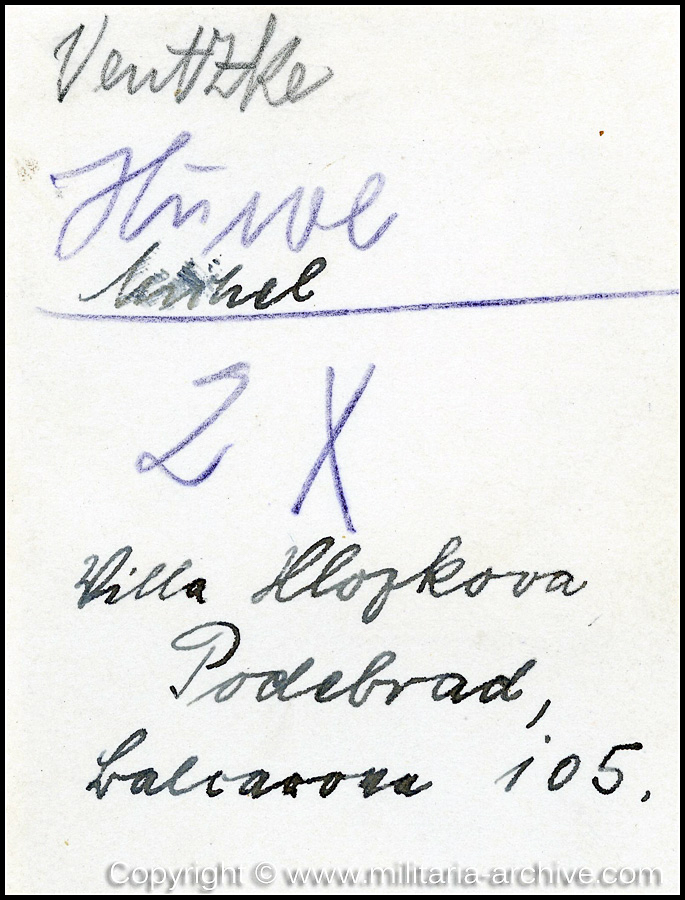 Ventzke
Hüwe
2 X
Villa Hlozkova
Podebrad,
Balcarova 105.
Copyright © www.militaria-archive.com